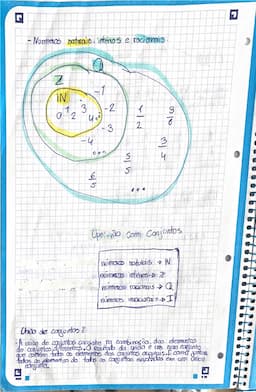 - Números naturais inteiros e racionais
Q
Z
IN
-1
0 1 2 3 4 ...
-2
-3
-4
...
1/2
9/8
3/4
5/5
6/5
...
Operação com Conjuntos
números naturais → N
números inteiros → Z
números racionais → Q
números irracionais → I
União de conjuntos
A união de conjuntos consiste na combinação dos elementos
de conjuntos diferentes. O resultado da união é um novo conjunto
que contém todos os elementos dos conjuntos
todos os elementos de todos os conjuntos em um único
conjunto.